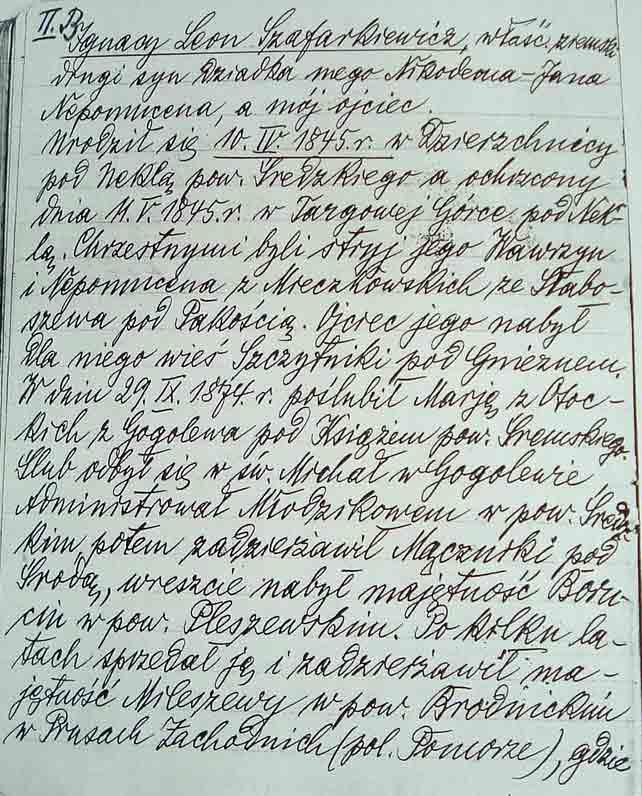 II. B.
Ignacy Leon Szafarkiewicz, właśc. ziemski
drugi syn Dziadka mego Nikodema-Jana
Nepomucena, a mój ojciec.
Urodził się 10. IV. 1845. r. w Dzierzchnicy
pod Neklą pow. Średzkiego a ochrzcony
dnia 11. V. 1845. r. w Targowej Górce pod Nek-
lą. Chrzestnymi byli stryj jego Wawrzyn
i Nepomucena z Mieczkowskich ze Słabo-
szewa pod Pakością. Ojciec jego nabył
dla niego wieś Szczytniki pod Gnieznem.
W dniu 29. IX. 1874. r. poślubił Marję z Otoc-
kich z Gogolewa pod Książem pow. Śremskiego.
Ślub odbył się w św. Michał w Gogolewie,
Administrował Młodzikowem w pow. Średz-
kim, potem zadzierżawił Mączniki pod
Środą, wreszcie nabył majętność Boru-
cin w pow. Pleszewskim. Po kilku la-
tach sprzedał ją i zadzierżawił ma-
jętność Mileszewy w pow. Brodnickim
w Prusach Zachodnich (pol. Pomorze), gdzie